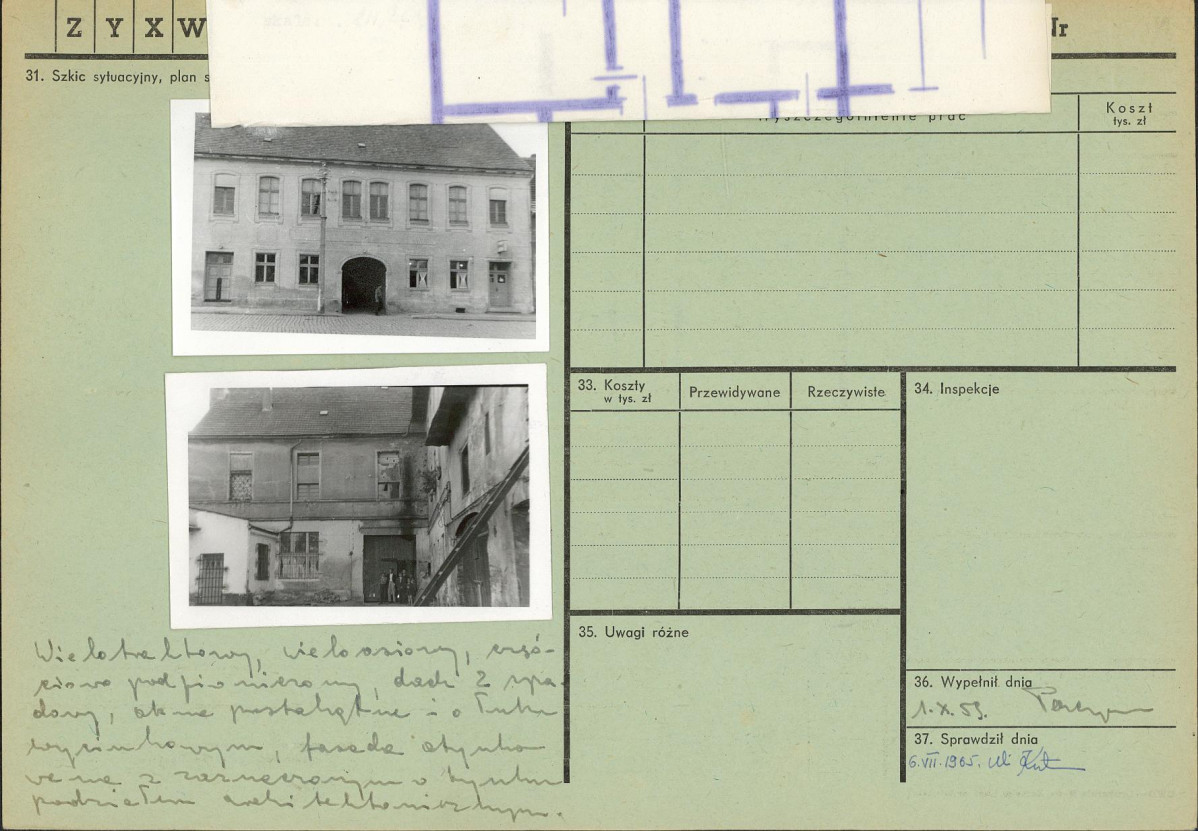 Z Y X W
31. Szkic sytuacyjny, plan
Wyszczególnienie prac
Koszt
tys. zł
33. Koszty
w tys. zł
Przewidywane
Rzeczywiste
34. Inspekcje
35. Uwagi różne
36. Wypełnił dnia
1.X.59.
37. Sprawdził dnia
6.VII.1965.
Wielotraktowy, wieloosiowy, częś-
ciowo podpiwniczony, dach 2 spa-
dowy, okna prostokątne i o łuku
wycinkowym, fasada otynko
wana z zaznaczonym w tynku
podziałem architektonicznym.